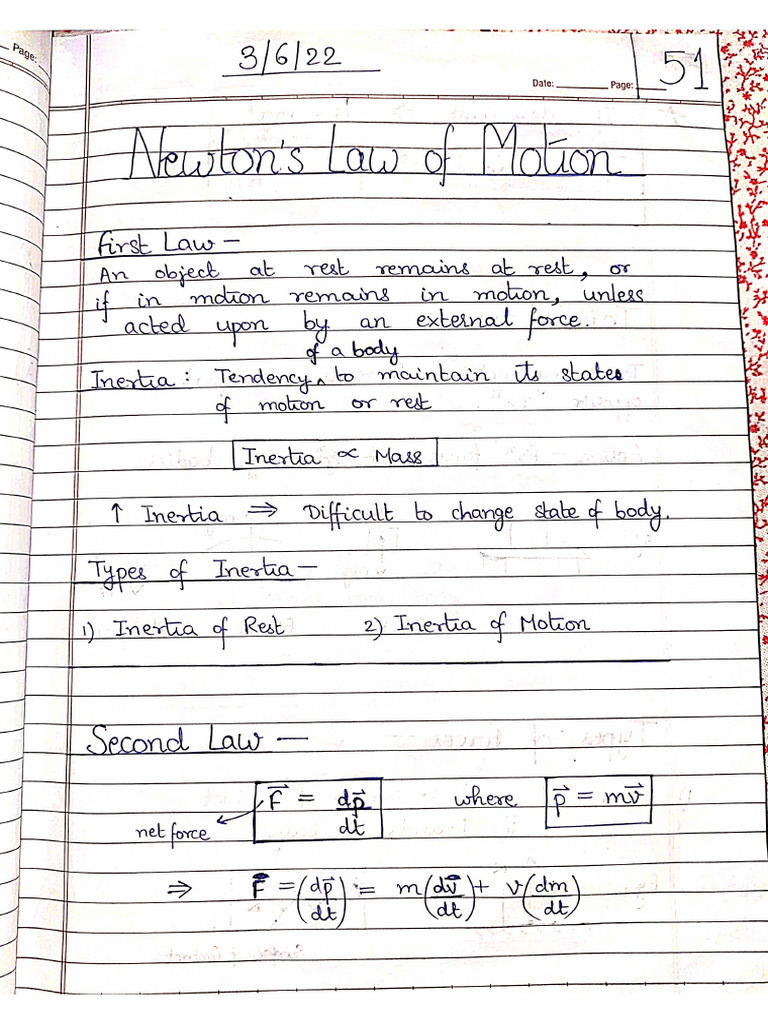 Page:
3/6/22
Date: ______ Page: ______ 51
Newton's Law of Motion
First Law –
An object at rest remains at rest, or
if in motion remains in motion, unless
acted upon by an external force.
of a body
Inertia : Tendency ^ to maintain its state
of motion or rest
Inertia ∝ Mass
↑ Inertia ⇒ Difficult to change state of body.
Types of Inertia –
1) Inertia of Rest 2) Inertia of Motion
Second Law –
F⃗ = dp⃗/dt where p⃗ = mv⃗
net force
⇒ F⃗ = (dp⃗/dt) = m(dv⃗/dt) + v(dm/dt)